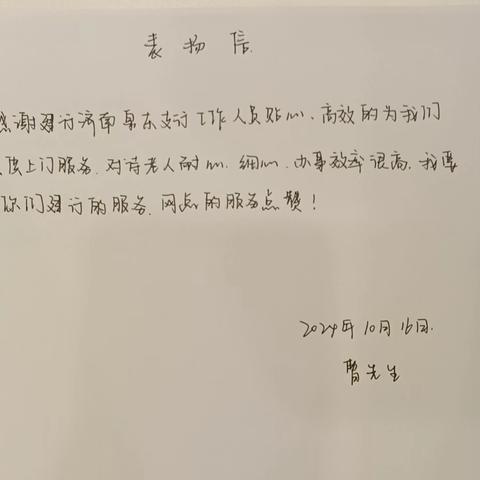 表扬信
感谢建行济南泉东支行工作人员贴心、高效的为我们
上门服务.对待老人耐心.细心.办事效率很高.我要
你们建行的服务.网点的服务点赞!
2024年10月16日.
曹先生